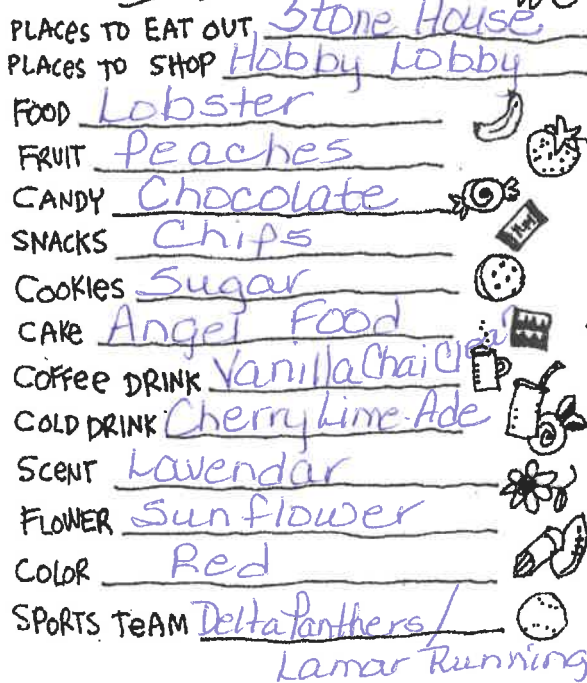 PLACES TO EAT OUT Stone House
PLACES TO SHOP Hobby Lobby
FOOD Lobster
FRUIT Peaches
CANDY Chocolate
SNACKS Chips
COOKIES Sugar
CAKE Angel Food
COFFEE DRINK Vanilla Chai
COLD DRINK Cherry Lime-Ade
SCENT Lavendar
FLOWER Sunflower
COLOR Red
SPORTS TEAM Delta Panthers/
Lamar Running